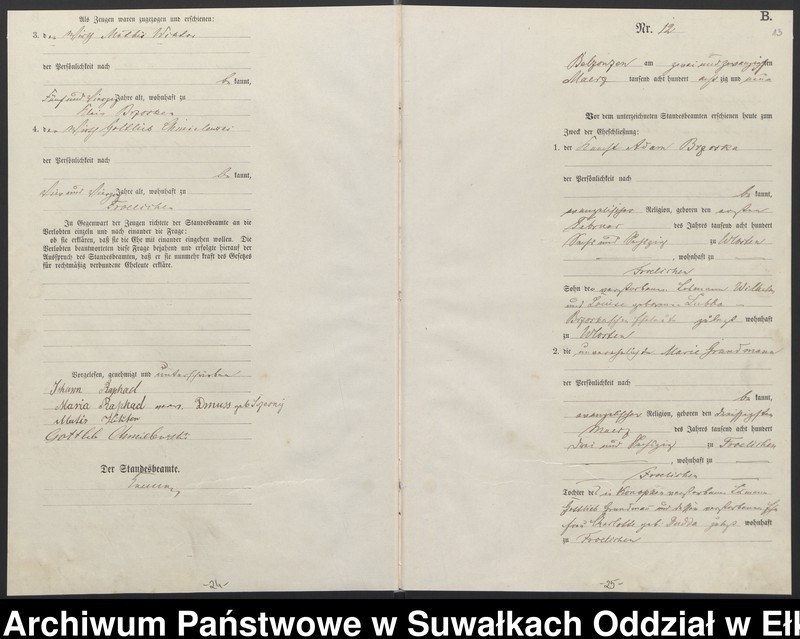 Als Zeugen waren zugezogen und erschienen:
3. der Wirth Mathis
der Persönlichkeit nach
be kannt,
Fünf und Jahre alt, wohnhaft zu
Klein Brzosken
4. der Wirth Gottlieb
der Persönlichkeit nach
be kannt,
Vier und Jahre alt, wohnhaft zu
Froelichen
In Gegenwart der Zeugen richtete der Standesbeamte an die
Verlobten einzeln und nach einander die Frage:
ob sie erklären, daß sie die Ehe mit einander eingehen wollen. Die
Verlobten beantworteten diese Frage bejahend und erfolgte hierauf der
Ausspruch des Standesbeamten, daß er sie nunmehr kraft des Gesetzes
für rechtmäßig verbundene Eheleute erkläre.
Vorgelesen, genehmigt und unterschrieben
Johann Raphael
Maria Raphael geb
Gottlieb
Der Standesbeamte.
-24-
B.
13
Nr. 12
am zwei und zwanzigsten
Maerz tausend acht hundert acht zig und neun
Vor dem unterzeichneten Standesbeamten erschienen heute zum
Zweck der Eheschließung:
1. der Knecht Adam Brzoska
der Persönlichkeit nach
be kannt,
evangelischer Religion, geboren den ersten
Februar des Jahres tausend acht hundert
Sechs und Sechszig zu Wlosten
, wohnhaft zu
Froelichen
Sohn der verstorbenen Wilhelm
und Louise geborenen
Brzoskaschen Eheleute zuletzt wohnhaft
zu Wlosten
2. die unverehelichte Marie Grandmann
der Persönlichkeit nach
be kannt,
evangelischer Religion, geboren den dreissigsten
Maerz des Jahres tausend acht hundert
Drei und Sechszig zu Froelichen
, wohnhaft zu
Froelichen
Tochter des in Konopken verstorbenen
Gottlieb und dessen verstorbenen Ehe
frau Charlotte geb. Dudda zuletzt wohnhaft
zu Froelichen
-25-
Archiwum Państwowe w Suwałkach Oddział w Eł